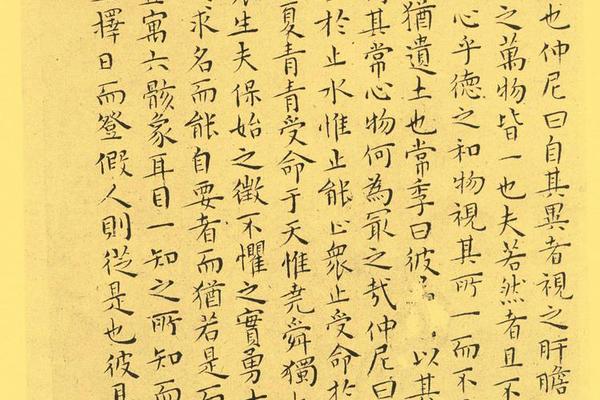 也仲尼曰自其異者視之肝膽
之萬物皆一也夫若然者且不
心乎德之和物視其所一而不
猶遺土也常季曰彼以其
其常心物何為冣之㢤仲尼曰
於止水惟止能止衆止受命於
夏青青受命于天惟堯舜獨
生夫保始之徵不懼之實勇
求名而能自要者而猶若是而
寓六骸象耳目一知之所知而
擇日而登假人則從是也彼且